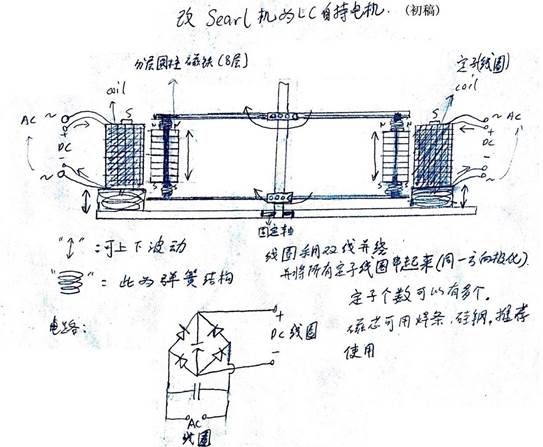 改 Searl 机为 LC 自持电机. (初稿)
分层圆柱磁铁 (8层)
定子(线圈)
coil
coil
S
N
N
N
N
S
AC ~
+
DC
-
~
~ AC
+
DC
-
~
S
S
S
S
固定轴
"↕"：可上下波动
线圈采用双线并绕
并将所有定子线圈串起来(同一方向极化)
"　"：此为弹簧结构
定子个数可以有多个。
磁芯可用焊条、硅钢。推荐
使用
电路：
+
DC 线圈
-
AC
线圈